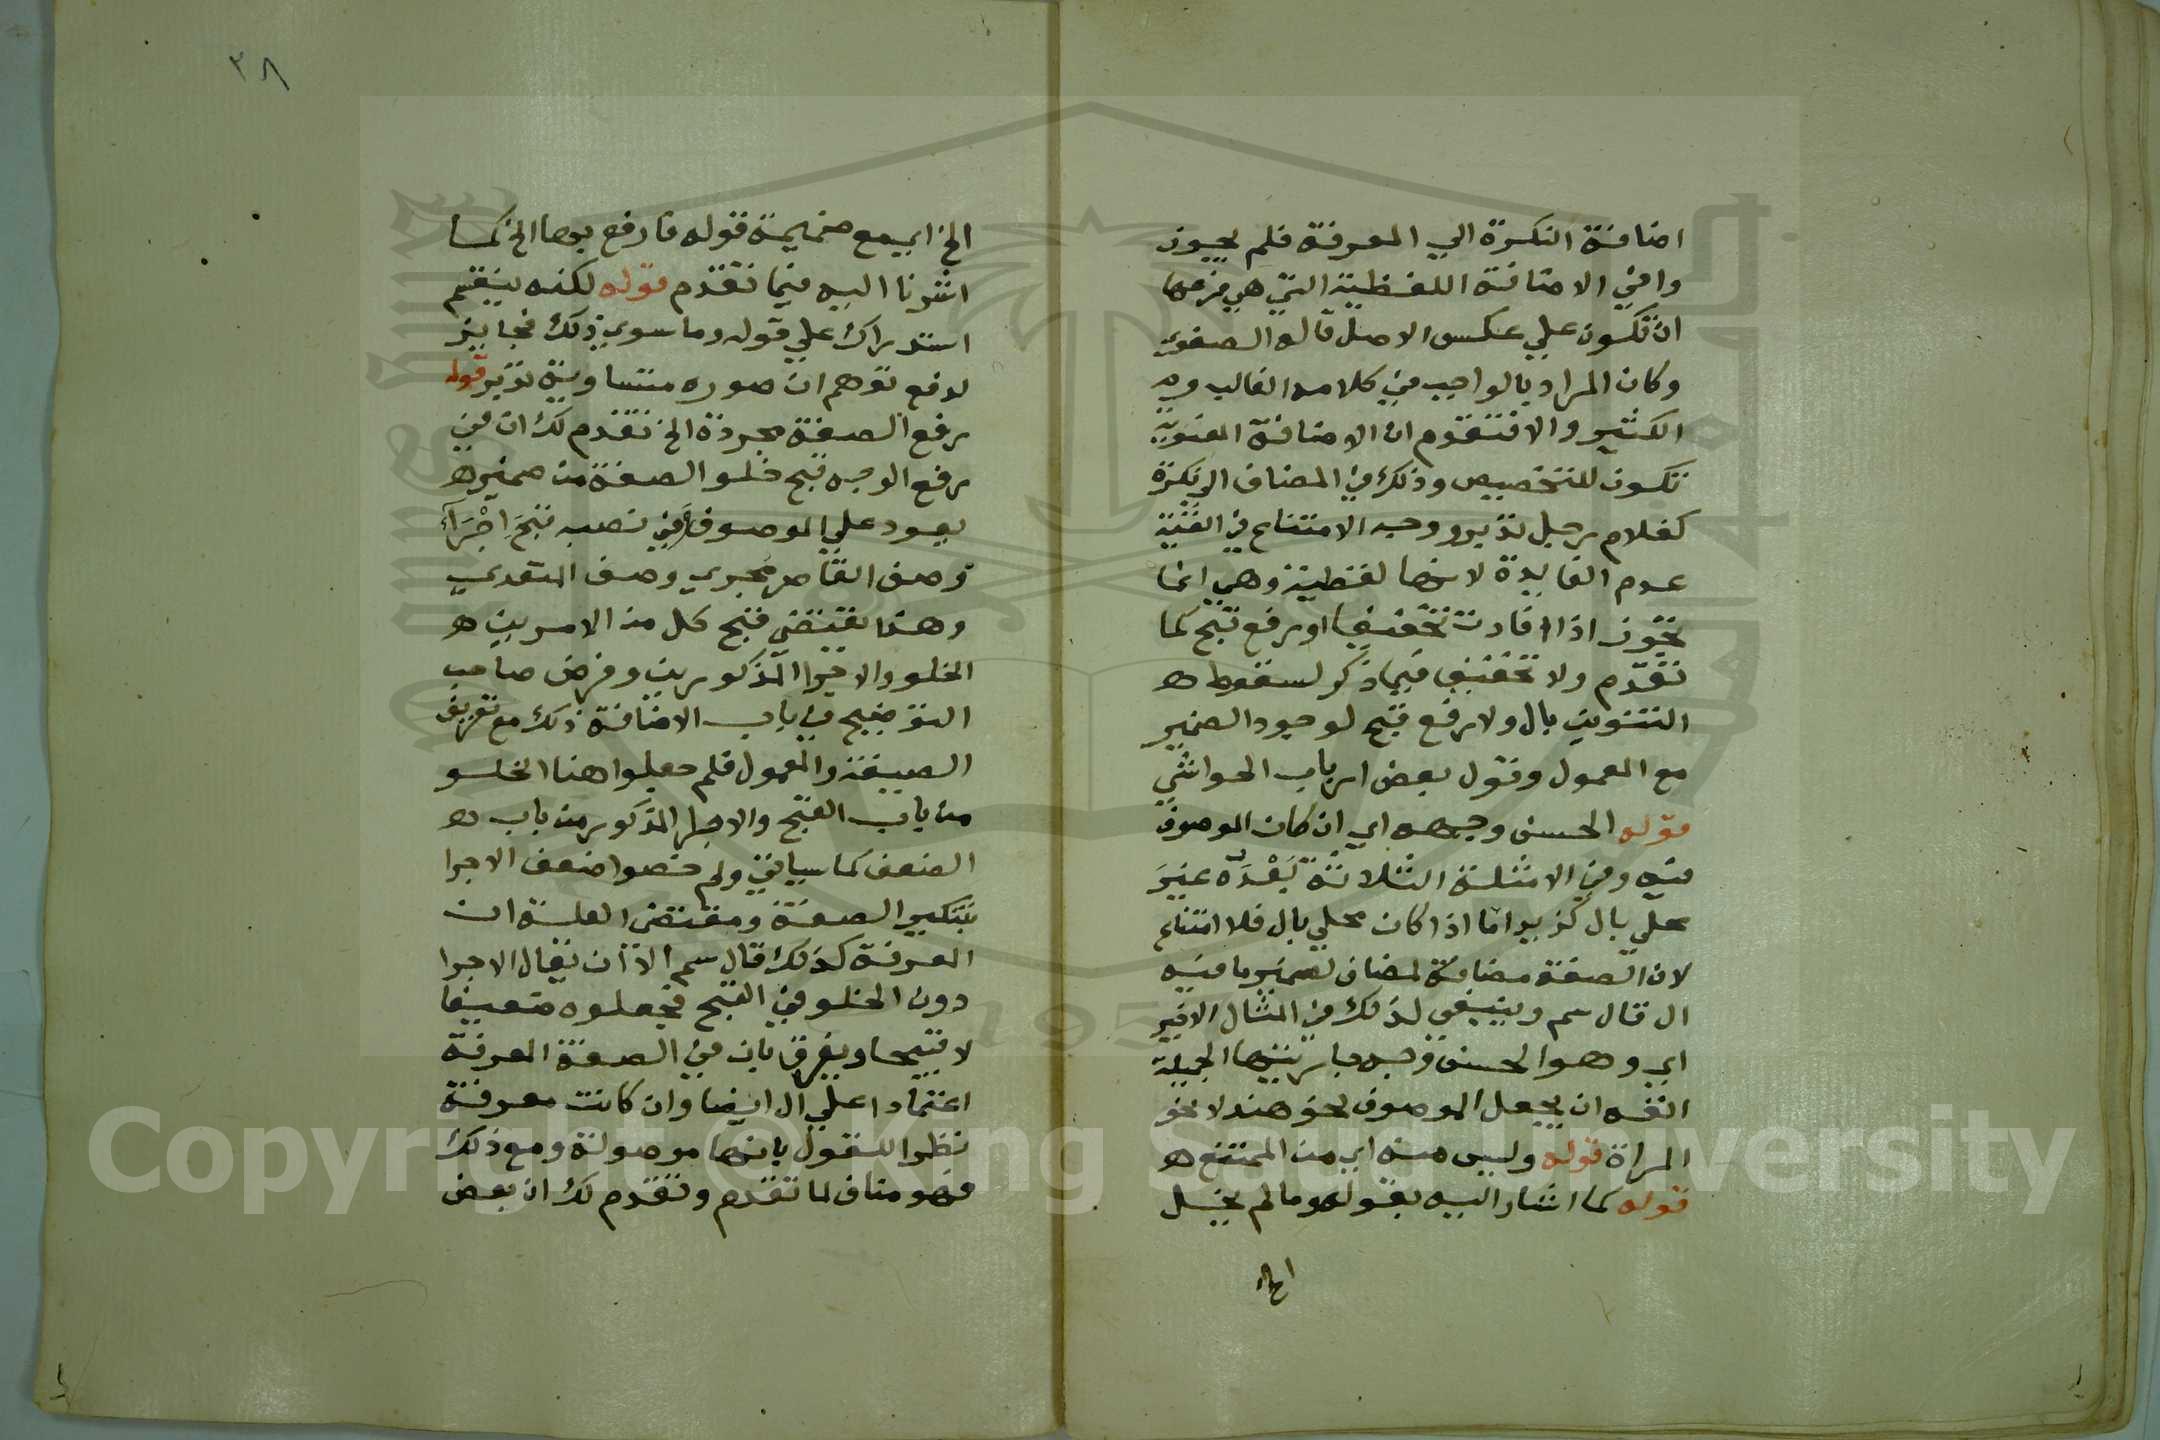 اضافة النكرة الي المعرفة فلم يجيزو
وا في الاضافة اللفظية التي هي فرعها
ان تكون علي عكس الاصل قاله الصفوي
وكان المراد بالواجب في كلامه الغالب و
الكثير والا فتقدم ان الاضافة المعنوية
تكون للتخصيص وذلك في المضاف الي نكرة
كغلام رجل تدبر ووجه الامتناع في الثنية
عدم الفايدة لانها لفظية وهي انما
تجوز اذا افادت تخفيفا او رفع قبح كما
تقدم ولا تخفيف فيما ذكر لسقوط ه
التنوين بال ولا رفع قبح لوجود الضمير
مع المعمول ونقول بعض ارباب الحواشي
قوله الحسن وجهه اي ان كان الموصوف
فيه وفي الامثلة الثلاثة بعده غير
محلي بال كزيد اما اذا كان محلي بال فلا امتناع
لان الصفة مضافة لمضاف لضمير ما فيه
ال قال سم وينبغي لذلك في المثال الاخير
اي وهو الحسن وجه جاريتها الجميلة
انفه ان يجعل الموصوف نحو هند لا نحو
المراة قوله وليس منه اي من الممتنع ه
قوله كما اشار اليه بقوله وما لم يخل
الخ
٣٨
الخ اي مع ضميمة قوله فارفع بها الخ كما
اشرنا اليه فيما تقدم قوله لكنه ينقسم
استدراك علي قوله وما سوي ذلك فجايز
لدفع توهم ان صوره متساوية تدبر قوله
رفع الصفة مجردة الخ تقدم لك ان في
رفع الوجه قبح خلو الصفة من ضمير ه
يعود علي الموصوف وفي نصبه قبح اجراء
وصف القاصر مجري وصف المتعدي
وهذا يقتضي قبح كل من الامرين ه
الخلو والاجرا المذكورين وفرض صاحب
التوضيح في باب الاضافة ذلك مع تعريف
الصفة والمعمول فلم جعلوا هنا الخلو
من باب القبح والاجرا المذكور من باب ه
الضعف كما سياتي ولم خصوا ضعف الاجرا
بتنكير الصفة ومقتضي العلة ان
المعرفة كذلك قال سم الا ان يقال الاجرا
دون الخلو في القبح فجعلوه ضعيفا
لا قبيحا ويفرق بان في الصفة المعرفة
اعتمادا علي ال ايضا وان كانت معرفة
نظرا للقول بانها موصولة ومع ذلك
فهو مناف لما تقدم وتقدم لك ان بعض
Copyright © King Saud University